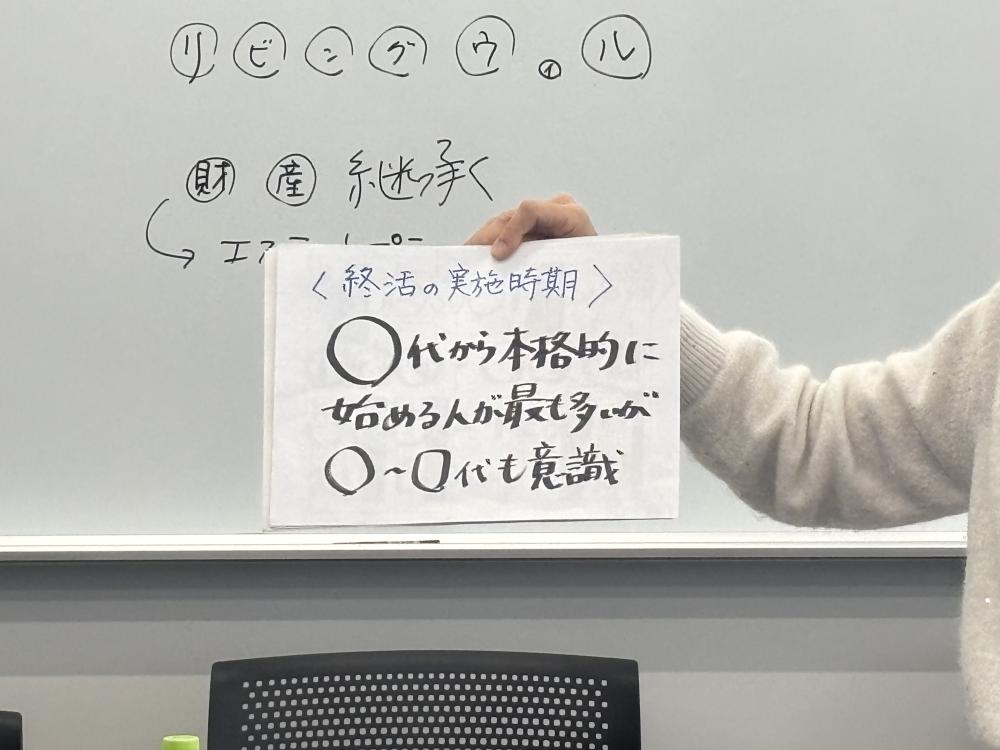 リビングウィル
財産継承く
〈終活の実施時期〉
○代から本格的に
始める人が最も多いが
○〜□代も意識